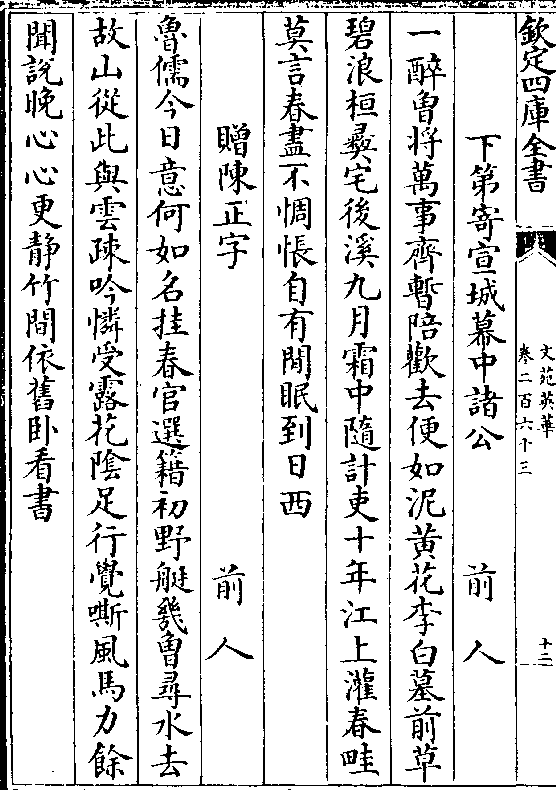 欽定四庫全書
文苑英華
卷二百六十三
十二
下第寄宣城幕中諸公 前人
一醉曾將萬事齊暫陪歡去便如泥黄花李白墓前草
碧浪桓彛宅後溪九月霜中隨計吏十年江上灌春畦
莫言春盡不惆悵自有閒眠到日西
贈陳正字 前人
魯儒今日意何如名挂春官選籍初野艇幾曾尋水去
故山從此與雲疎吟憐受露花陰足行覺嘶風馬力餘
聞說晩心心更静竹間依舊卧看書